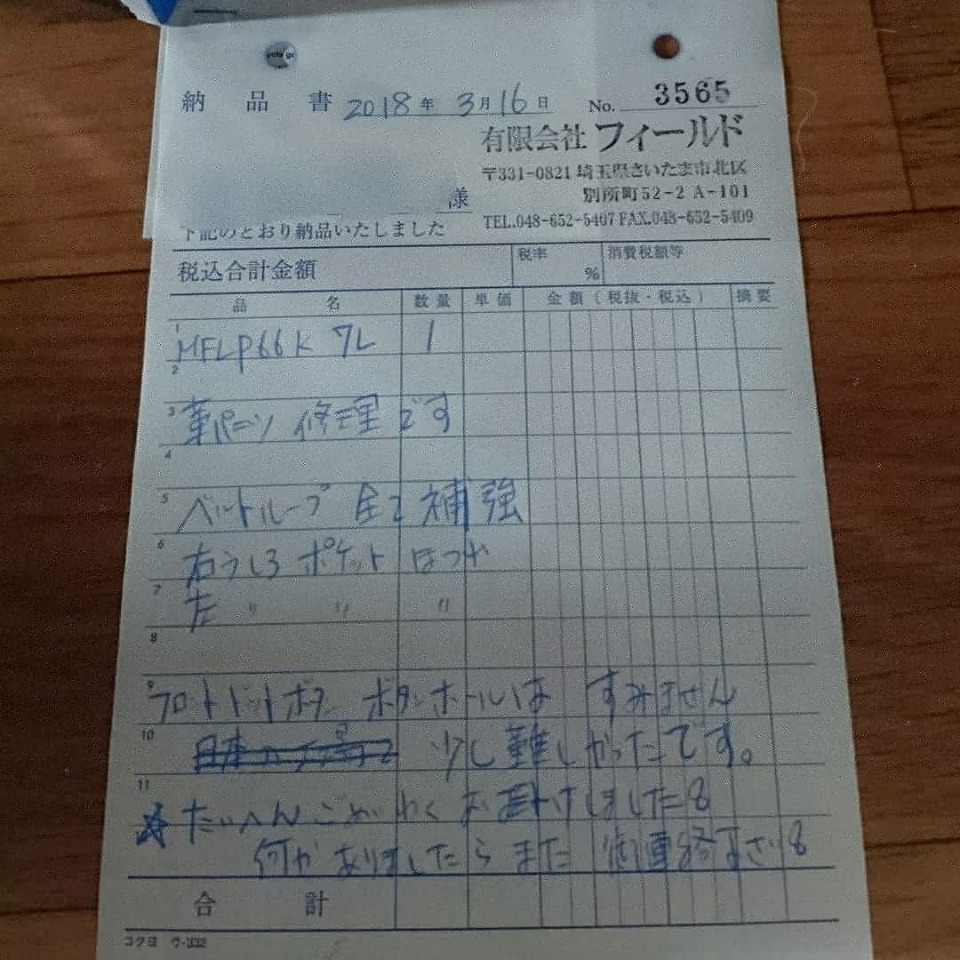 納品書 2018年 3月16日 No. 3565
有限会社 フィールド
〒331-0821 埼玉県さいたま市北区
別所町52-2 A-101
様 TEL.048-652-5407 FAX.048-652-5409
下記のとおり納品いたしました
税込合計金額 税率 % 消費税額等
品名 数量 単価 金額(税抜・税込) 摘要
1 MFLP66K 7L 1
2
3 革パンツ 修理です
4
5 ベルトループ 全て補強
6 右うしろ ポケット ほつれ
7 左 〃 〃 〃
8
9 フロントドットボタン ボタンホールは すみません
10 少し難しかったです。
11 たいへんごめいわくお掛けしました。
何かありましたらまた 御連絡下さい。
合計
コクヨ ウ-332